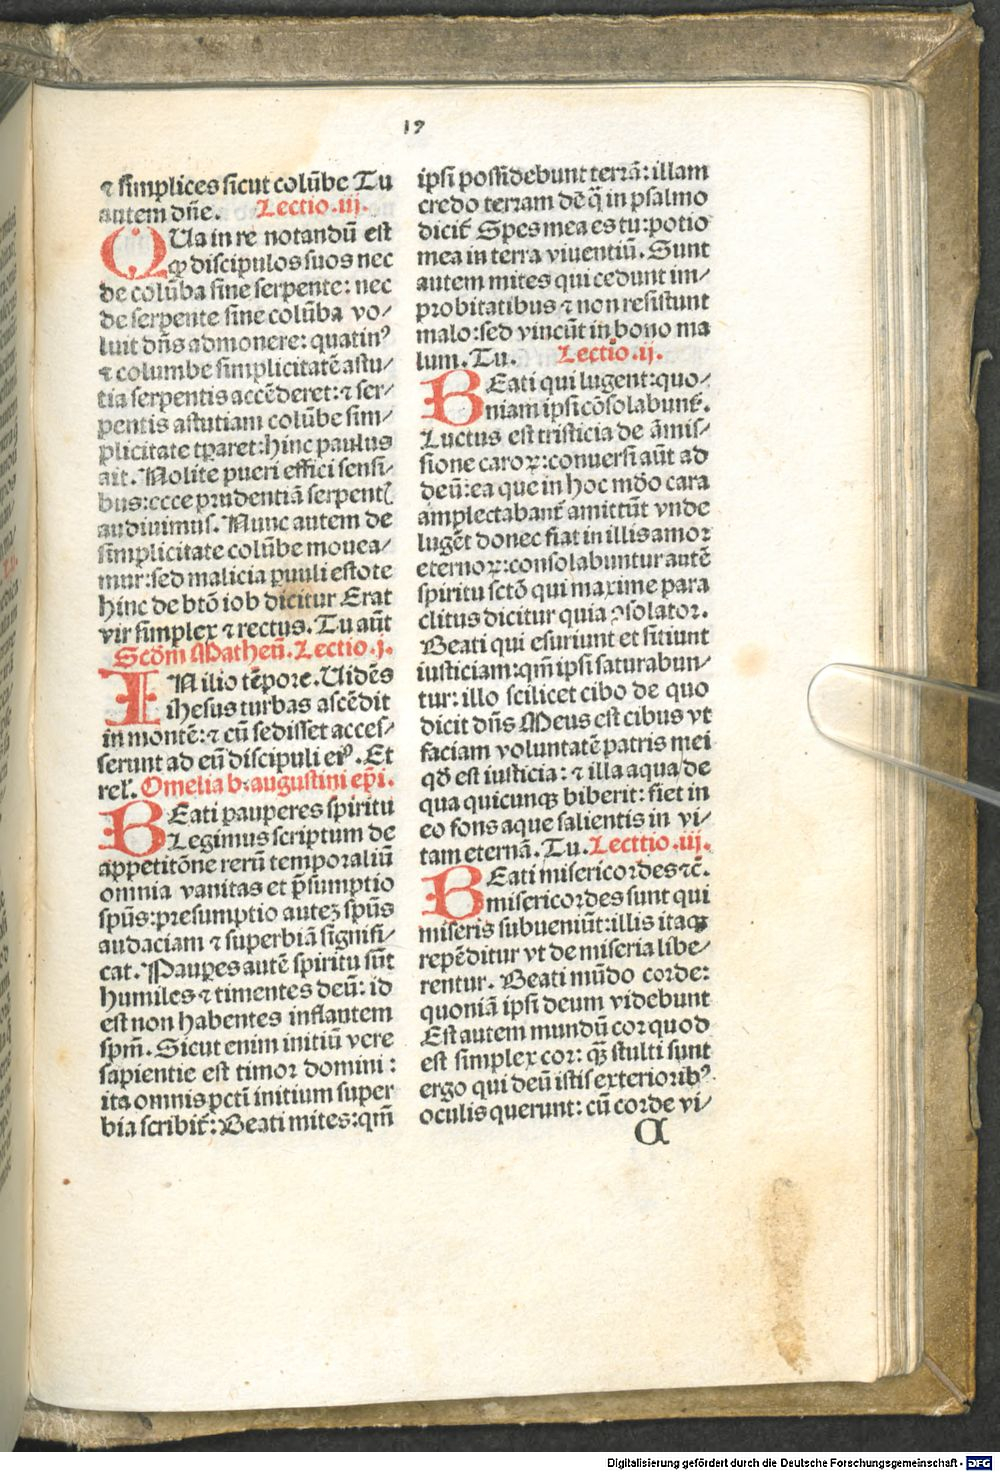 19
⁊ simplices sicut colūbe Tu
autem dn̄e. Lectio .iij.
QUa in re notandū est
ꝙ discipulos suos nec
de colūba sine serpente: nec
de serpente sine colūba vo⸗
luit dn̄s admonere: quatinꝰ
⁊ columbe simplicitatē astu⸗
tia serpentis accēderet: ⁊ ser⸗
pentis astutiam colūbe sim⸗
plicitate tꝑaret: hinc paulus
ait. Nolite pueri effici sensi⸗
bus: ecce prudentiā serpentꝭ
audiuimus. Nunc autem de
simplicitate colūbe mouea⸗
mur: sed malicia ꝑuuli estote
hinc de btō iob dicitur Erat
vir simplex ⁊ rectus. Tu aūt
Scd̄m Matheū. Lectio .j.
IN illo tēpore. Uidēs
ihesus turbas ascēdit
in montē: ⁊ cū sedisset acces⸗
serunt ad eū discipuli eiꝰ. Et
rel̓. Omelia b. augustini ep̄i.
BEati pauperes spiritu
Legimus scriptum de
appetitōne rerū temporaliū
omnia vanitas et p̄sumptio
spūs: presumptio auteʒ spūs
audaciam ⁊ superbiā signifi⸗
cat. Pauꝑes autē spiritu sūt
humiles ⁊ timentes deū: id
est non habentes inflautem
spm̄. Sicut enim initiū vere
sapientie est timor domini:
ita omnis pctī initium super
bia scribit̄: Beati mites: qm̄
ipsi possidebunt terrā: illam
credo terram de q̄ in psalmo
dicit̄ Spes mea es tu: potio
mea in terra viuentiū. Sunt
autem mites qui cedunt im⸗
probitatibus ⁊ non resistunt
malo: sed vincūt in bono ma
lum. Tu. Lectio .ij.
BEati qui lugent: quo⸗
niam ipsi cōsolabunt̄.
Luctus est tristicia de āmis⸗
sione caroꝝ: conuersi aūt ad
deū: ea que in hoc mūdo cara
amplectabant̄ amittūt vnde
lugēt donec fiat in illis amor
eternoꝝ: consolabuntur autē
spiritu sctō qui maxime para
clitus dicitur quia ꝯsolator.
Beati qui esuriunt et sitiunt
iusticiam: qm̄ ipsi saturabun⸗
tur: illo scilicet cibo de quo
dicit dn̄s Meus est cibus vt
faciam voluntatē patris mei
qd̄ est iusticia: ⁊ illa aqua de
qua quicunqꝫ biberit: fiet in
eo fons aque salientis in vi⸗
tam eternā. Tu. Lecttio .iij.
BEati misericordes ⁊c̄.
misericordes sunt qui
miseris subueniūt: illis itaqꝫ
repēditur vt de miseria libe⸗
rentur. Beati mūdo corde:
quoniā ipsi deum videbunt
Est autem mundū cor quod
est simplex cor: qꝫ̄ stulti sunt
ergo qui deū istis exterioribꝰ
oculis querunt: cū corde vi⸗
a
Digitalisierung gefördert durch die Deutsche Forschungsgemeinschaft - DFG